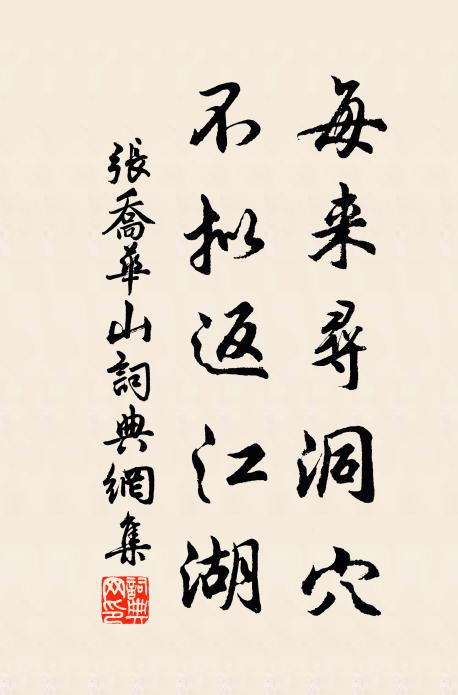 每来尋洞穴
不拟返江湖
張喬華山詞典網集
詞典网印